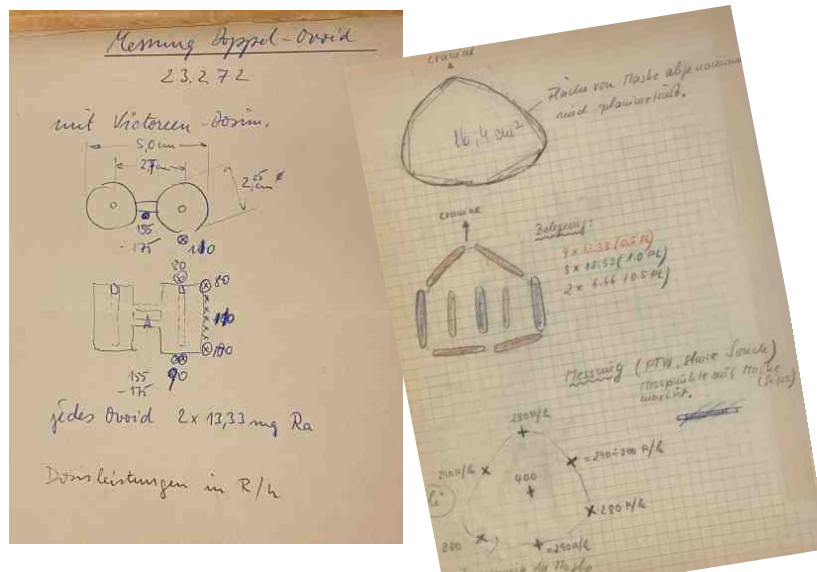 Messung Doppel-Ovoid
23.2.72
mit Victoreen-Dosim.
5,0 cm
2,7 cm
2,25 cm
155
-175
110
80
80
110
100
90
155
-175
jedes Ovoid 2 x 13,33 mg Ra
Dosisleistungen in R/h
cranial
Fläche von Maske abgenommen
und planimetriert.
16,4 cm²
cranial
Belegung:
4 x 13.33 (0.5 Pt)
3 x 13.33 (1.0 Pt)
2 x 6.66 (0.5 Pt)
Messung (PTW, Sonde)
Messpunkte auf Maske
markiert.
280 R/h
=290÷300 R/h
240 R/h
400
280 R/h
280
=290 R/h
der Maske